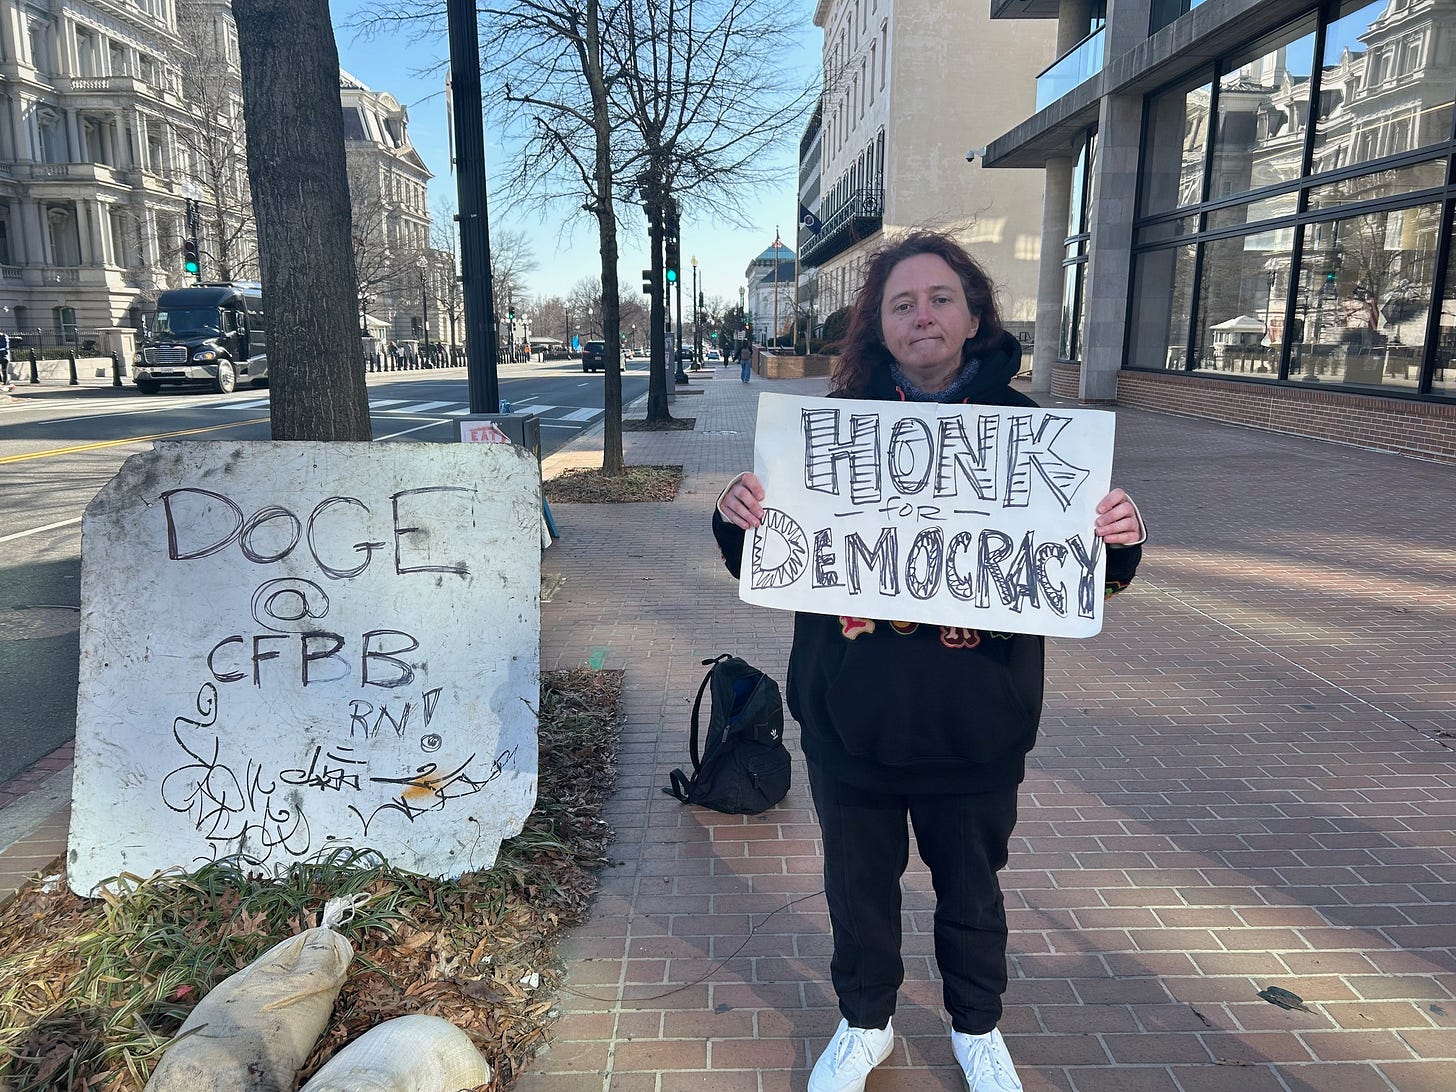 DOGE
@
CFPB
RN!
HONK
for
DEMOCRACY
EAT